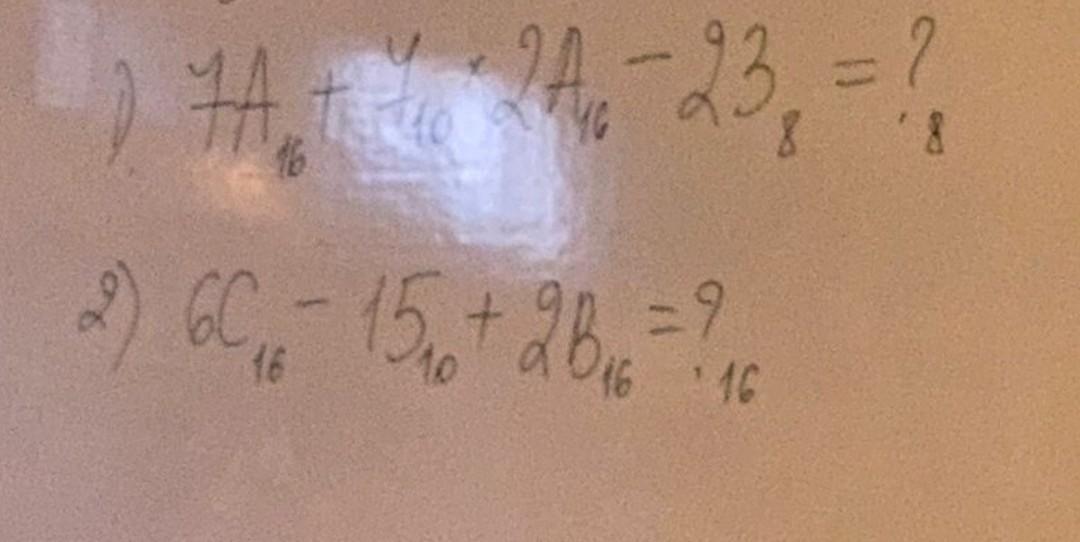 1) 7A₁₆ + 7₁₀ * 2A₁₆ - 23₈ = ?₈
2) 6C₁₆ - 15₁₀ + 2B₁₆ = ?₁₆